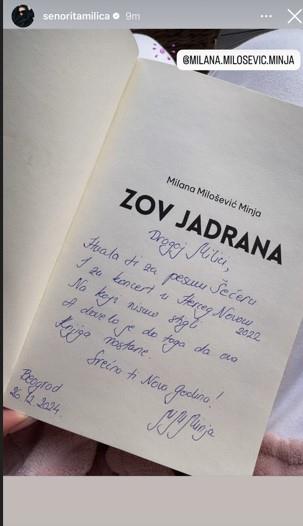 senoritamilica 9m
@MILANA.MILOSEVIC.MINJA
Milana Milošević Minja
ZOV JADRANA
Dragoj Milici,
Hvala ti za pesmu Šećeru
I za koncert u Herceg Novom 2022
Na koji nismo stigli
A dovelo je do toga da ova
Knjiga nastane.
Srećna ti Nova godina!
Beograd
26.12.2024.
Minja